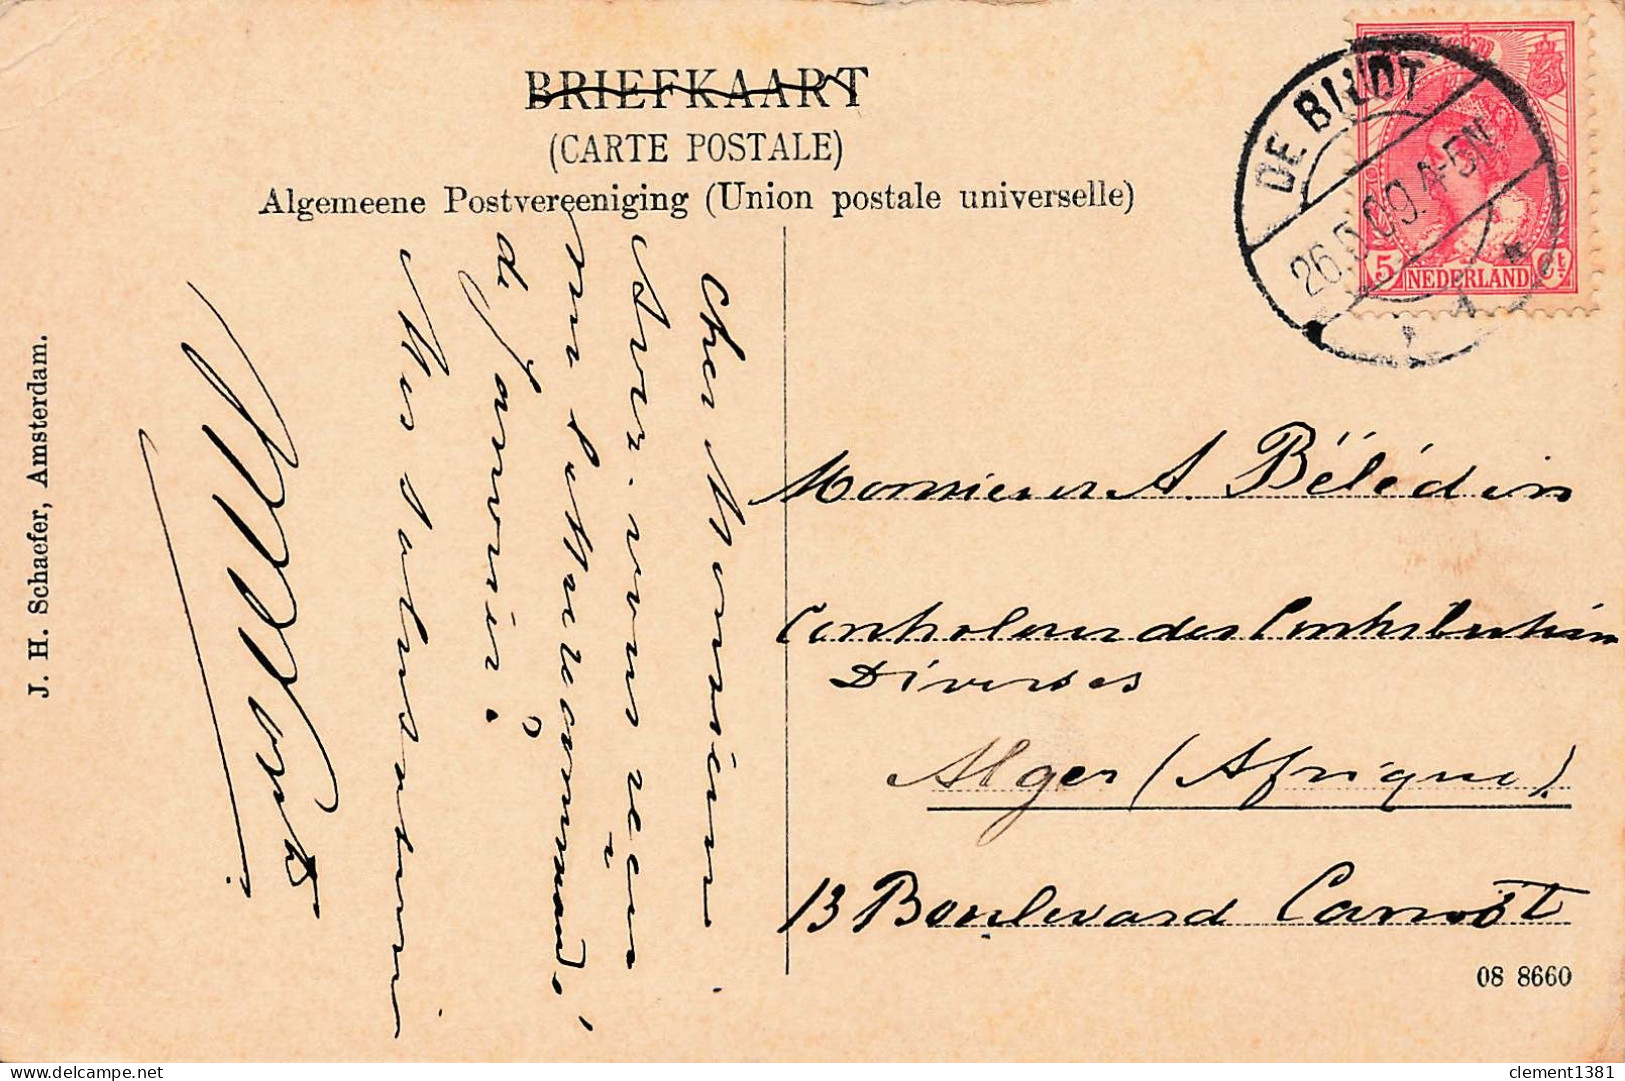 BRIEFKAART
(CARTE POSTALE)
Algemeene Postvereeniging (Union postale universelle)
DE BILDT
26.5.09.4-5N
1
5 NEDERLAND Ct
Cher Monsieur
Avez-vous reçu
de Janvier?
Mes salutations
Monsieur A. Bélédin
Controleur des Contributions
Diverses
Alger (Afrique).
13 Boulevard Carnot
08 8660
J. H. Schaefer, Amsterdam.
clement1381